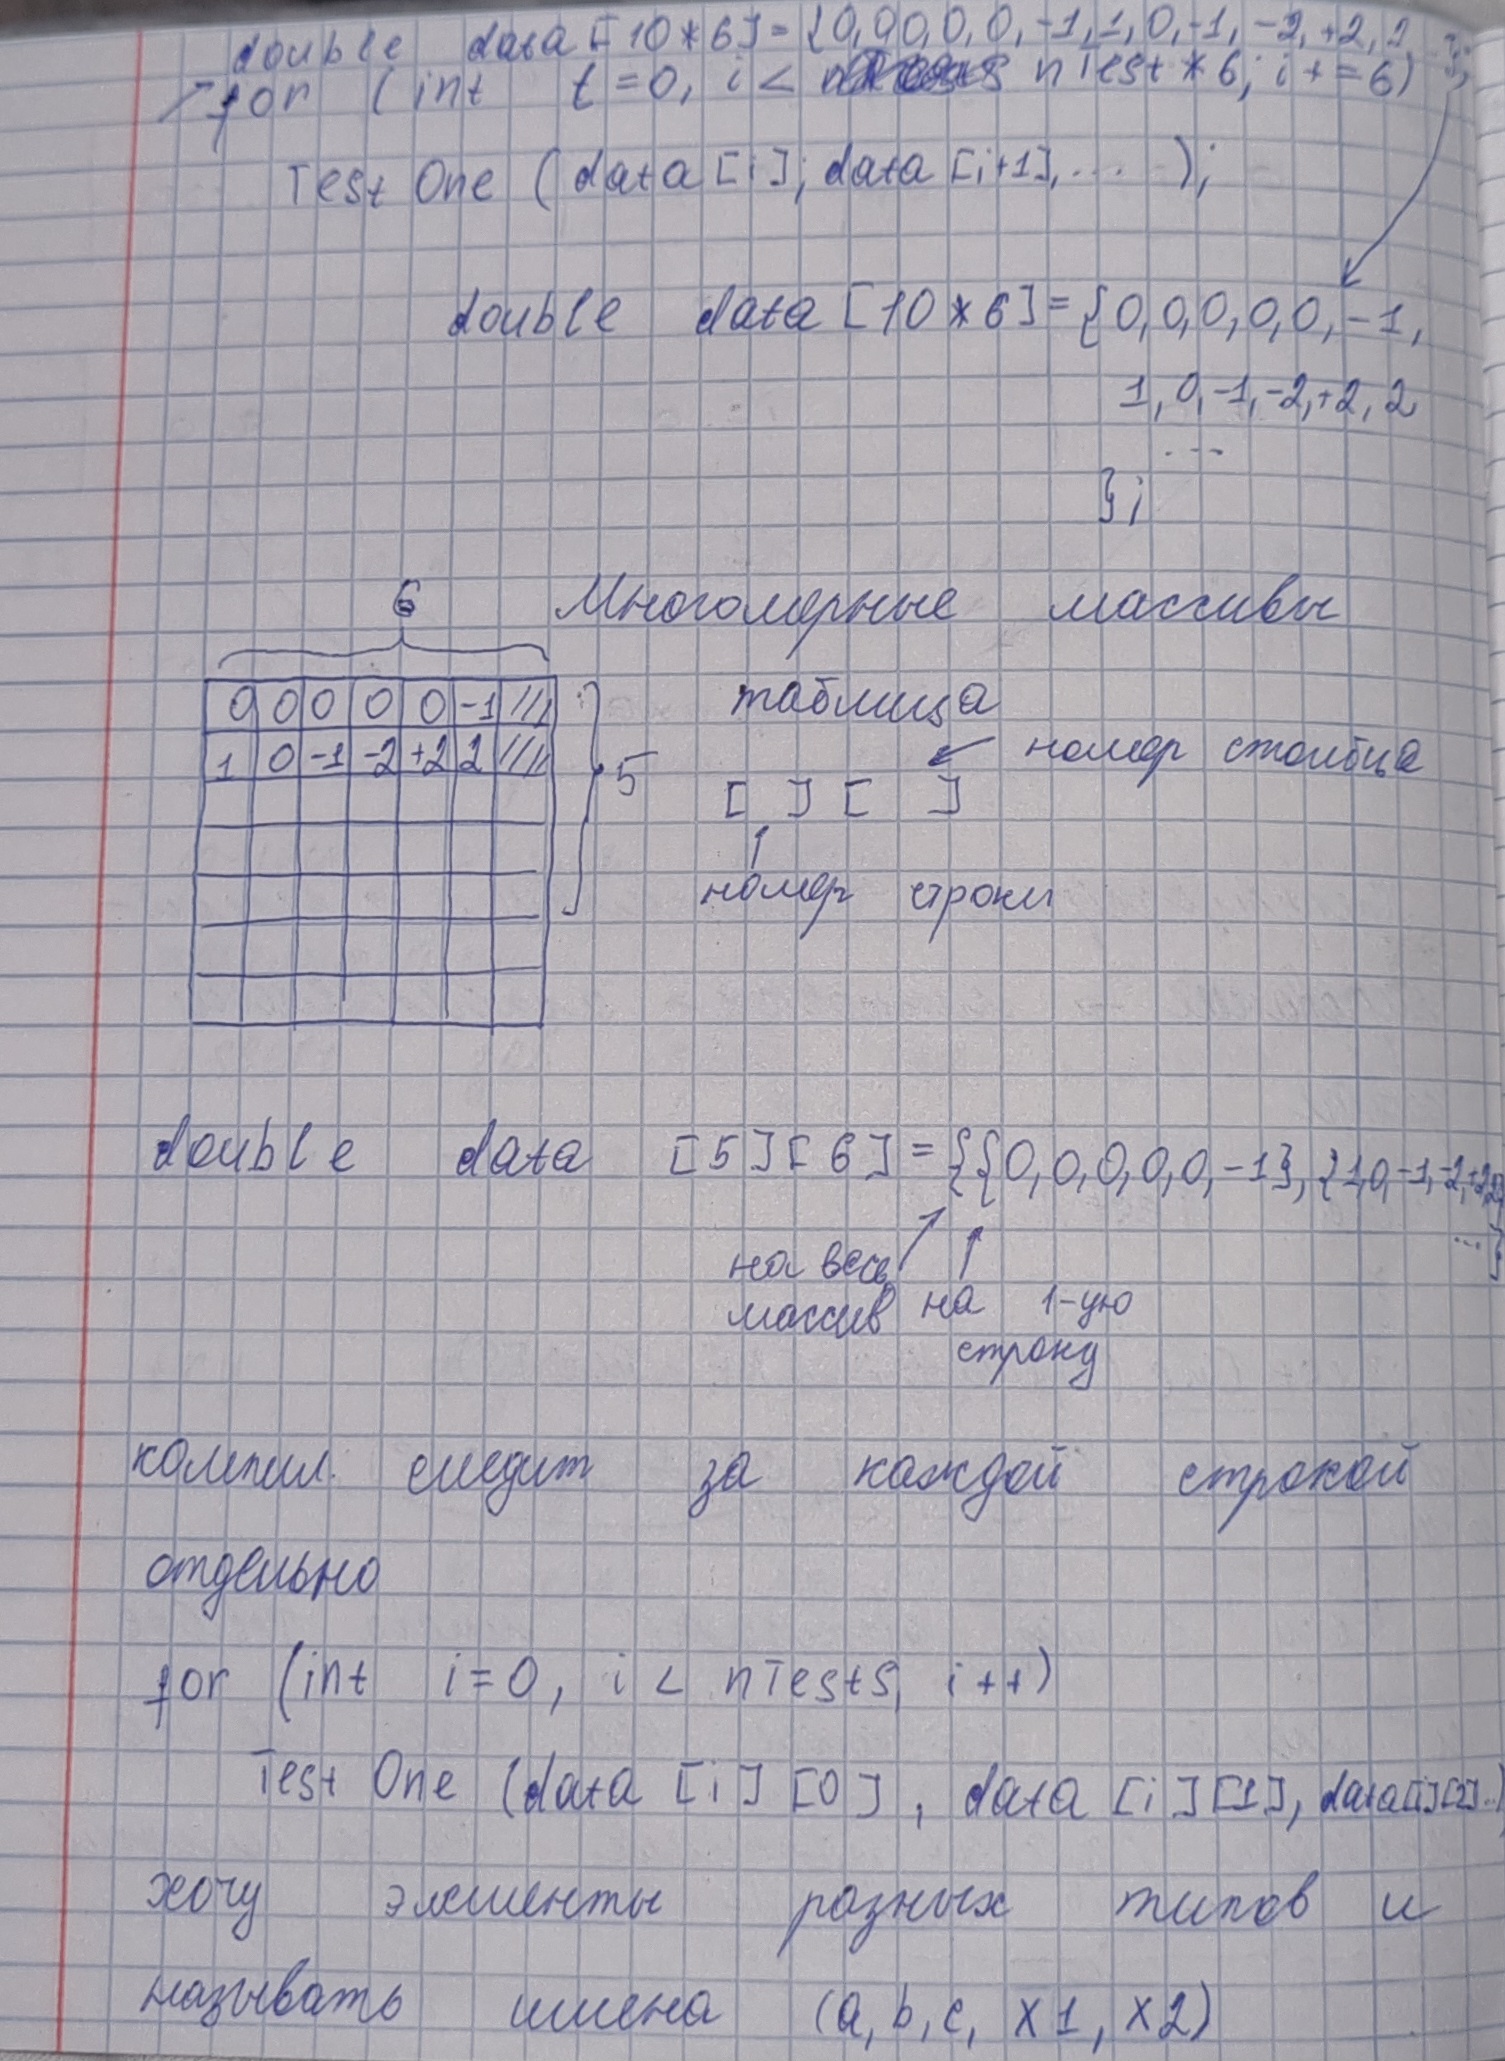 double data[10*6]={0,00,0,0,-1,1,0,-1,-2,+2,2 };
for (int t=0, i< nTest*6; i+=6)
Test One (data[i]; data[i+1], ... );
double data[10*6]={0,0,0,0,0,-1,
1,0,-1,-2,+2,2
...
};
6 Многомерные массивы
0 0 0 0 0 -1
таблица
1 0 -1 -2 +2 2
5
номер столбца
[ ][ ]
номер строки
double data [5][6]={{0,0,0,0,0,-1},{1,0,-1,-2,+2,2}
...}
на весь
массив на 1-ую
строку
компил. следит за каждой строкой
отдельно
for (int i=0, i< nTests, i++)
Test One (data[i][0], data[i][1], data[i][2]..)
хочу элементы разных типов и
называть имена (a,b,c, x1, x2)